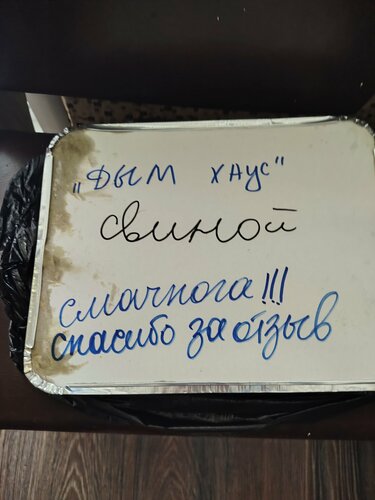 "ДЫМ ХАУС"
свиной
смачнога!!!
спасибо за отзыв